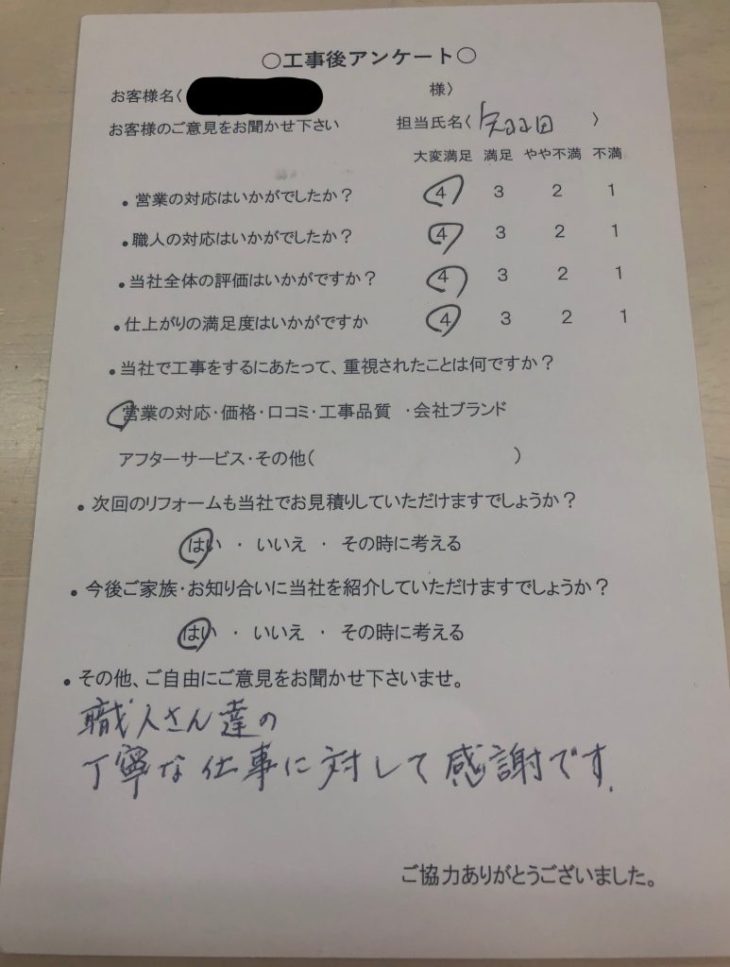 ○工事後アンケート○
お客様名( 様)
お客様のご意見をお聞かせ下さい 担当氏名( )
大変満足 満足 やや不満 不満
・営業の対応はいかがでしたか？ 4 3 2 1
・職人の対応はいかがでしたか？ 4 3 2 1
・当社全体の評価はいかがですか？ 4 3 2 1
・仕上がりの満足度はいかがですか 4 3 2 1
・当社で工事をするにあたって、重視されたことは何ですか？
営業の対応・価格・口コミ・工事品質 ・会社ブランド
アフターサービス・その他( )
・次回のリフォームも当社でお見積りしていただけますでしょうか？
はい ・ いいえ ・ その時に考える
・今後ご家族・お知り合いに当社を紹介していただけますでしょうか？
はい ・ いいえ ・ その時に考える
・その他、ご自由にご意見をお聞かせ下さいませ。
職人さん達の
丁寧な仕事に対して感謝です.
ご協力ありがとうございました。